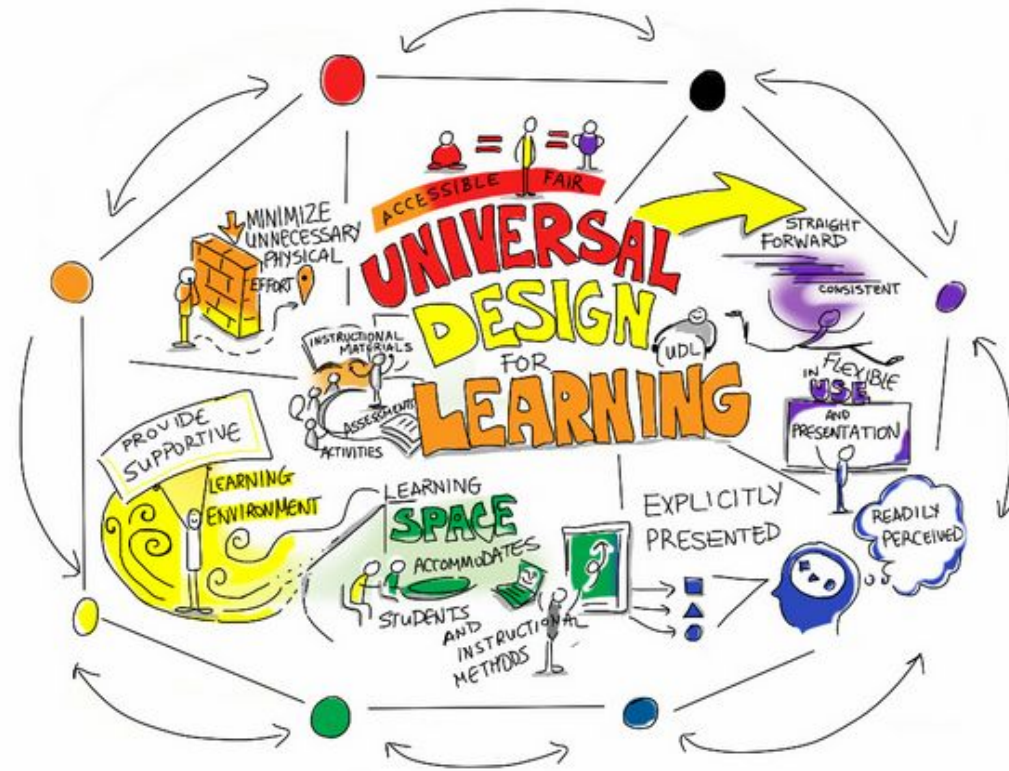 ACCESSIBLE FAIR
UNIVERSAL
DESIGN
FOR
LEARNING
UDL
MINIMIZE
UNNECESSARY
PHYSICAL
EFFORT
STRAIGHT
FORWARD
CONSISTENT
INSTRUCTIONAL
MATERIALS
ASSESSMENTS
ACTIVITIES
FLEXIBLE
IN USE
AND
PRESENTATION
PROVIDE
SUPPORTIVE
LEARNING
ENVIRONMENT
LEARNING
SPACE
ACCOMMODATES
STUDENTS
AND
INSTRUCTIONAL
METHODS
EXPLICITLY
PRESENTED
READILY
PERCEIVED